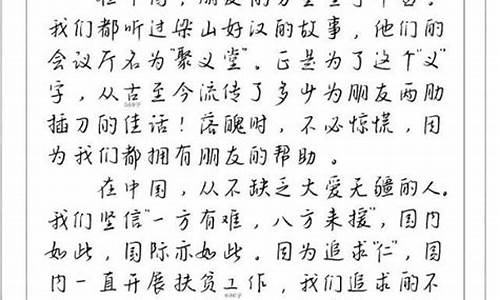 我们都听过梁山好汉的故事，他们的
会议厅名为“聚义堂”。正是为了这个“义”
字，从古至今流传了多少为朋友两肋
插刀的佳话！落魄时，不必惊慌，因
为我们都拥有朋友的帮助。
在中国，从不缺乏大爱无疆的人。
我们坚信“一方有难，八方来援”，国内
如此，国际亦如此。因为追求“仁”，国
内一直开展扶贫工作，我们追求的不